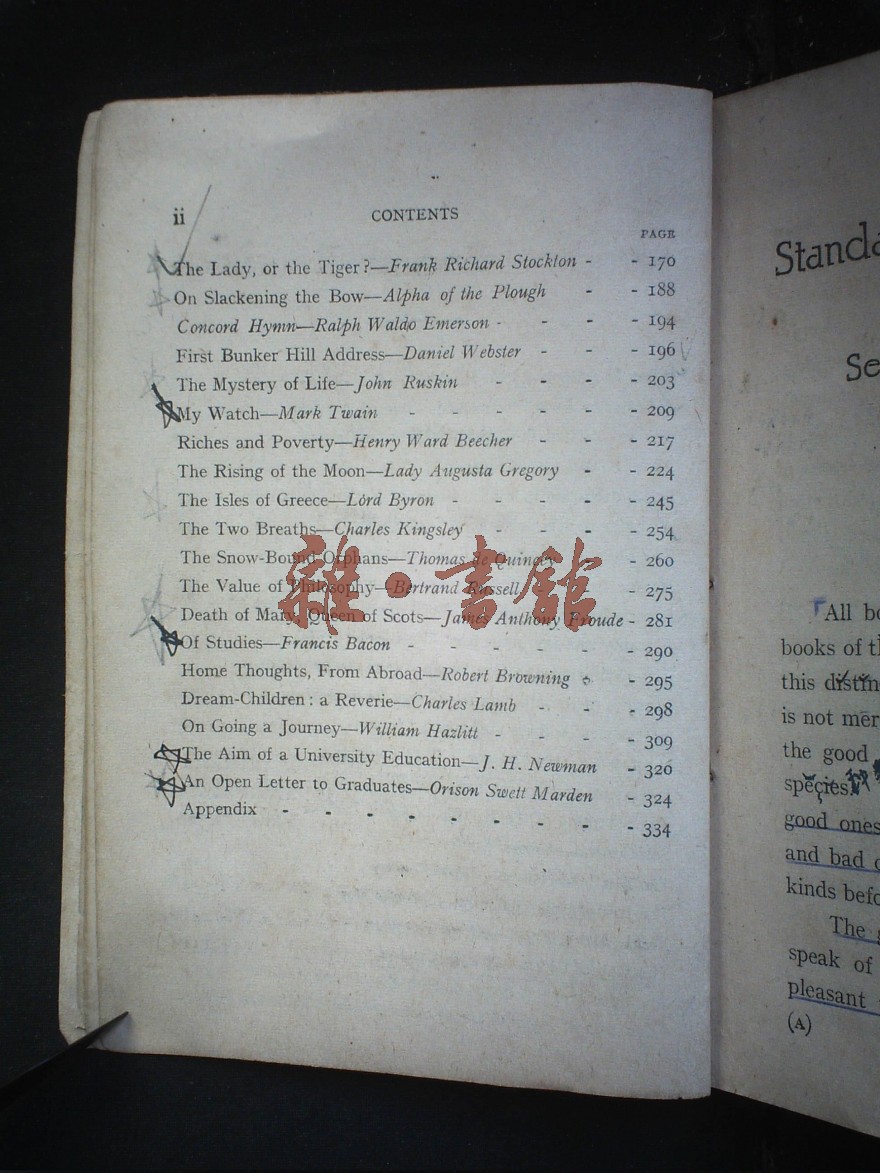 ii
CONTENTS
PAGE
The Lady, or the Tiger?—Frank Richard Stockton - - 170
On Slackening the Bow—Alpha of the Plough - - 188
Concord Hymn—Ralph Waldo Emerson - - - - 194
First Bunker Hill Address—Daniel Webster - - - 196
The Mystery of Life—John Ruskin - - - - 203
My Watch—Mark Twain - - - - - - 209
Riches and Poverty—Henry Ward Beecher - - - 217
The Rising of the Moon—Lady Augusta Gregory - - 224
The Isles of Greece—Lord Byron - - - - - 245
The Two Breaths—Charles Kingsley - - - - 254
The Snow-Bound Orphans—Thomas de Quincey - - 260
The Value of Philosophy—Bertrand Russell - - - 275
Death of Mary, Queen of Scots—James Anthony Froude - 281
Of Studies—Francis Bacon - - - - - - 290
Home Thoughts, From Abroad—Robert Browning - - 295
Dream-Children: a Reverie—Charles Lamb - - - 298
On Going a Journey—William Hazlitt - - - - 309
The Aim of a University Education—J. H. Newman - 320
An Open Letter to Graduates—Orison Swett Marden - 324
Appendix - - - - - - - - - 334
雜·書館
Standa
Se
All bo
books of th
this distin
is not mer
the good
species.
good ones
and bad
kinds befo
The
speak of
pleasant
(A)